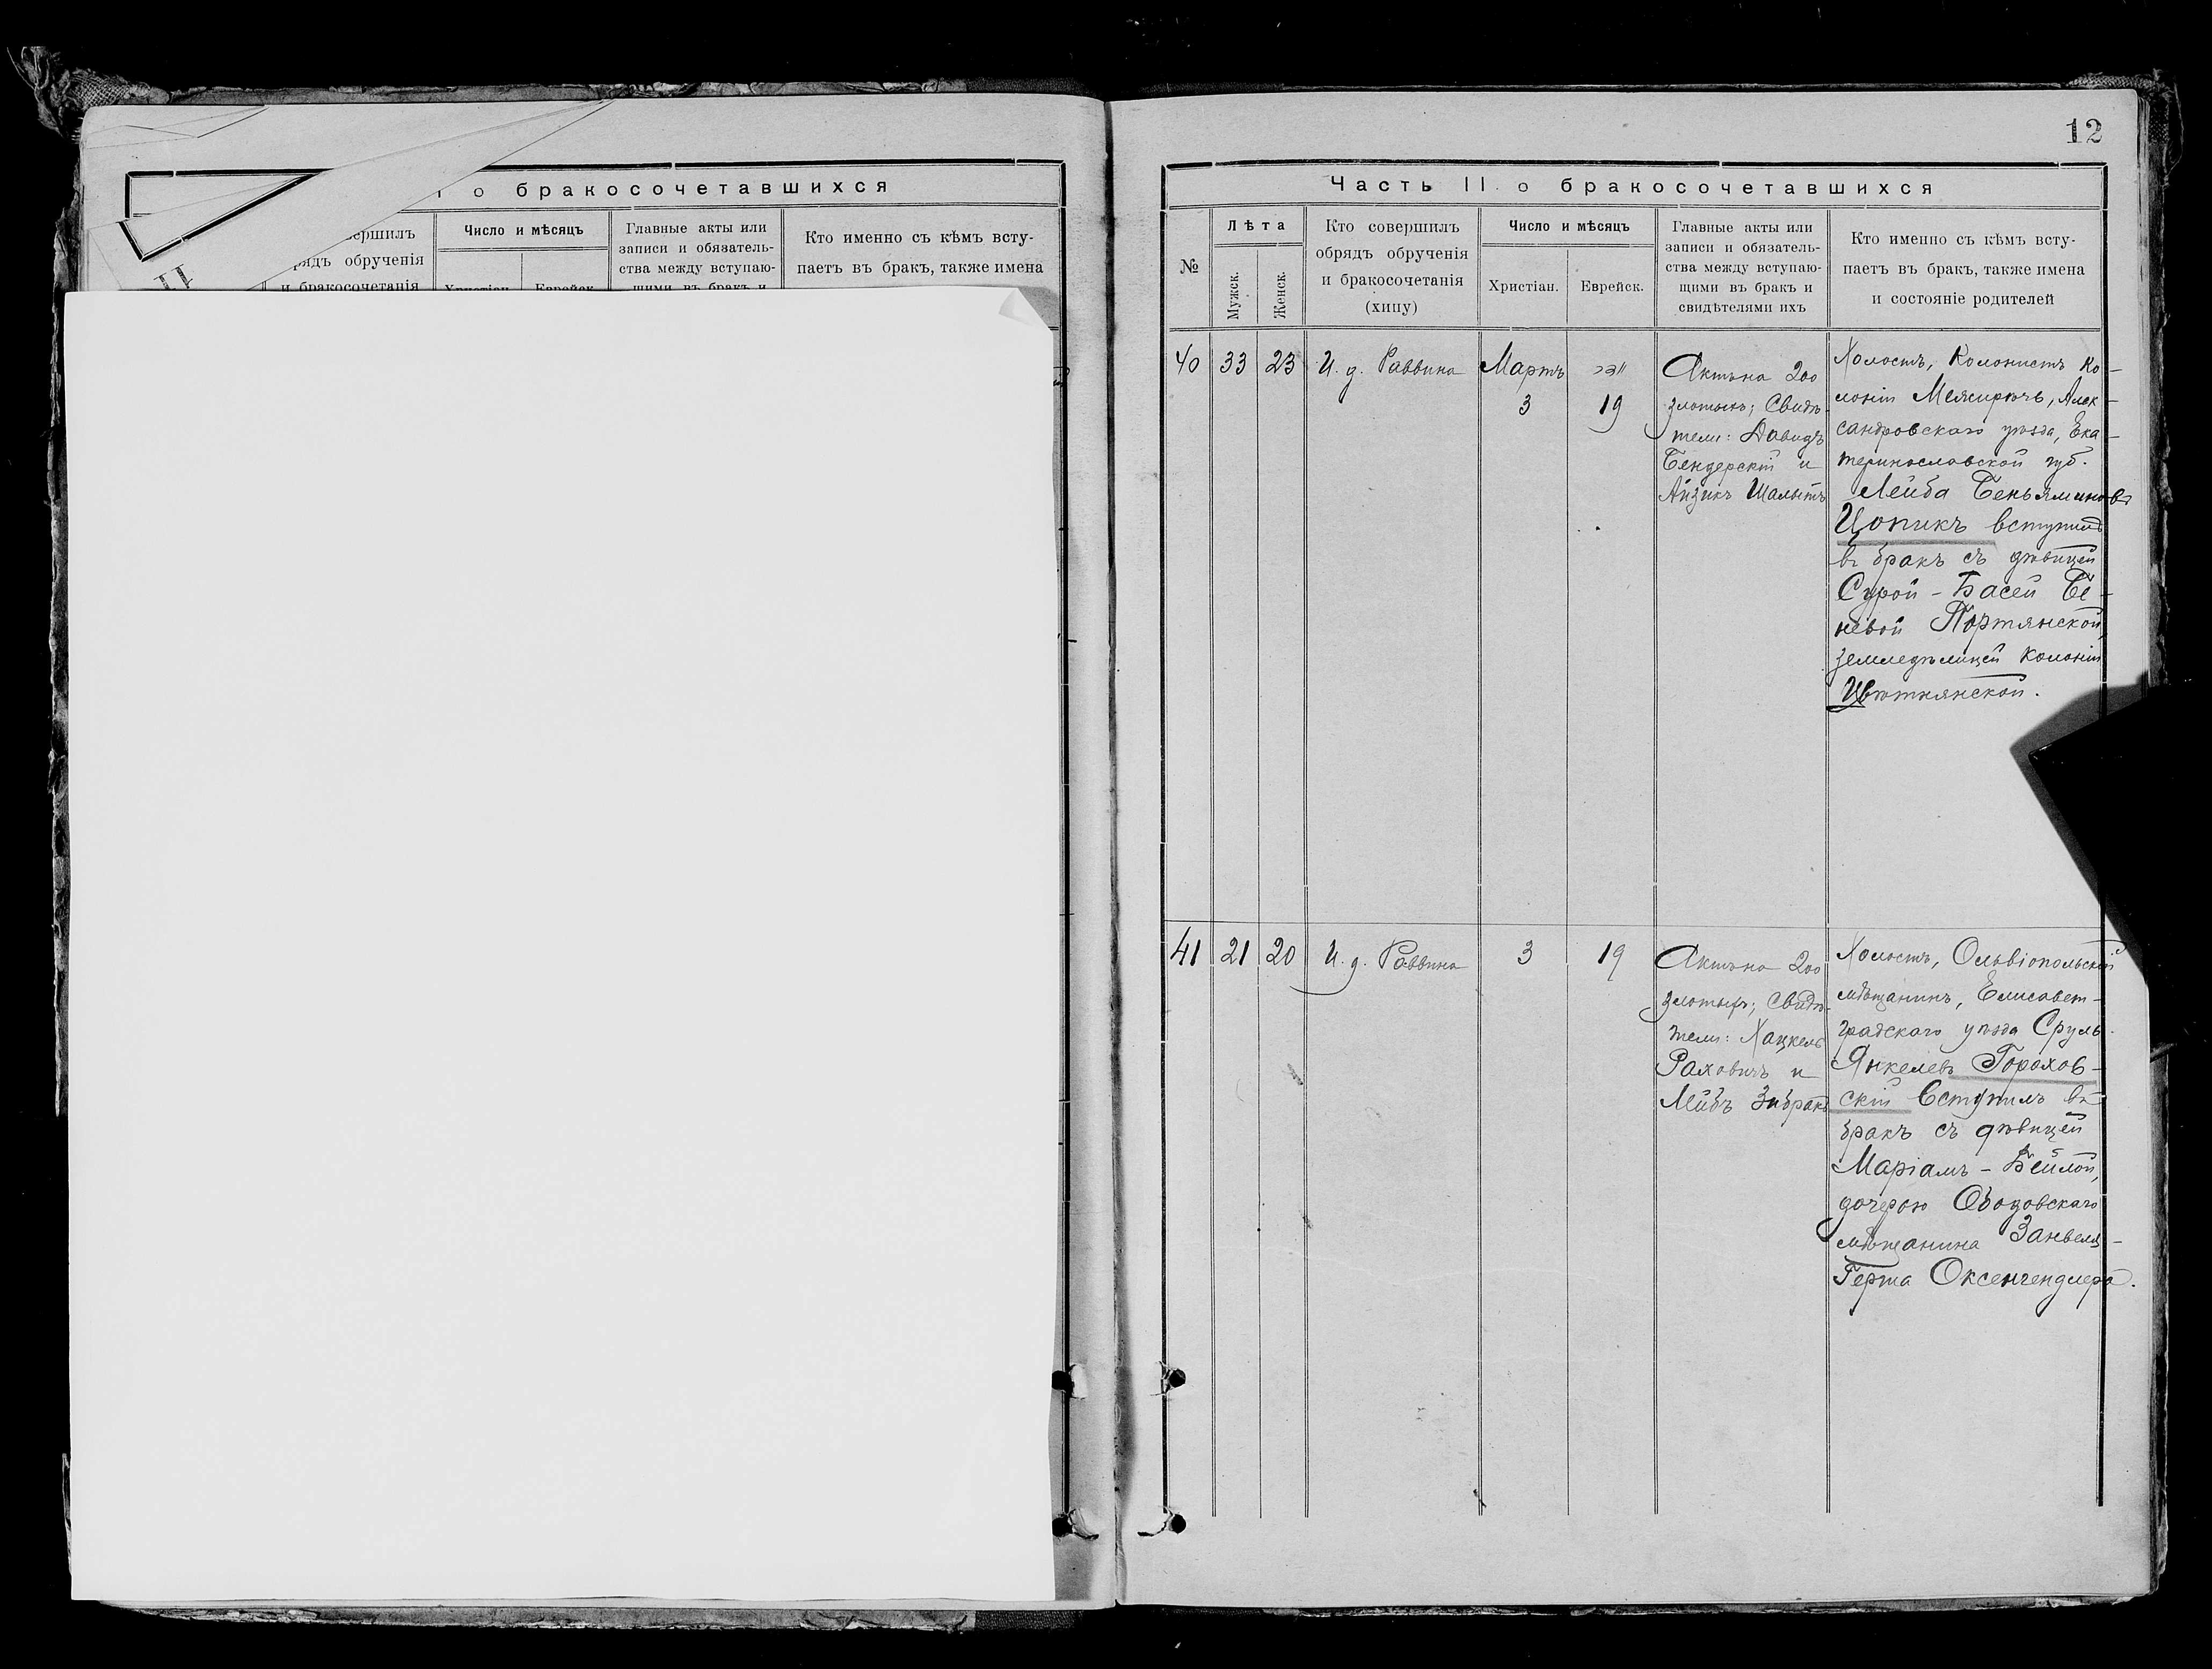 о бракосочетавшихся
ершилъ
рядъ обрученія
и бракосочетанія
Число и мѣсяцъ
Христіан.
Еврейск.
Главные акты или
записи и обязатель-
ства между вступаю-
щими въ бракъ и
Кто именно съ кѣмъ всту-
паетъ въ бракъ, также имена
12
Часть II о бракосочетавшихся
№
Лѣта
Мужск.
Женск.
Кто совершилъ
обрядъ обрученія
и бракосочетанія
(хипу)
Число и мѣсяцъ
Христіан.
Еврейск.
Главные акты или
записи и обязатель-
ства между вступаю-
щими въ бракъ и
свидѣтелями ихъ
Кто именно съ кѣмъ всту-
паетъ въ бракъ, также имена
и состояніе родителей
40
33
23
И. д. Раввина
Мартъ
3
19
Актъ на 200
злотыхъ; Свидѣ-
тели: Давидъ
Бендерскій и
Айзикъ Шалытъ
Холостъ, Колонистъ Ко-
лоніи Межирѣчъ, Алек-
сандровскаго уѣзда, Ека-
теринославской губ.
Лейба Беньяминовъ
Цопикъ вступилъ
въ бракъ съ дѣвицей
Сурой - Басей Бе-
невой Портянской,
земледѣлицей колоніи
Цвѣтнянской.
41
21
20
И. д. Раввина
3
19
Актъ на 200
злотыхъ; Свидѣ-
тели: Хацкель
Раховичъ и
Лейбъ
Холостъ, Ольвіопольскій
мѣщанинъ, Елисавет-
градскаго уѣзда Сруль
Янкелевъ Горохов-
скій вступилъ въ
бракъ съ дѣвицей
Маріамъ - Бейлой,
дочерью Ободовскаго
мѣщанина Занвеля-
Герша Оксенгендлера.